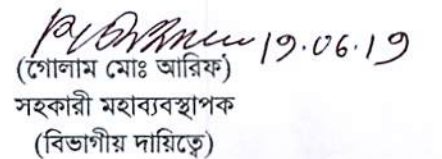 19.06.19
(গোলাম মোঃ আরিফ)
সহকারী মহাব্যবস্থাপক
(বিভাগীয় দায়িত্বে)